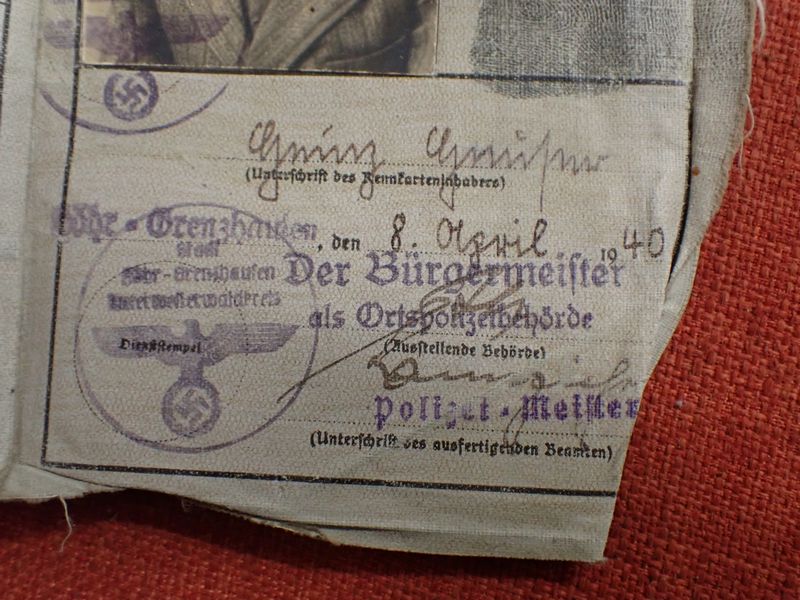 Heinz
(Unterschrift des Kennkarteninhabers)
Höhr-Grenzhausen, den 8. April 1940
Stadt
Höhr-Grenzhausen
Unterwesterwaldkreis
Der Bürgermeister
als Ortspolizeibehörde
Dienststempel
(Ausstellende Behörde)
Polizei-Meister
(Unterschrift des ausfertigenden Beamten)